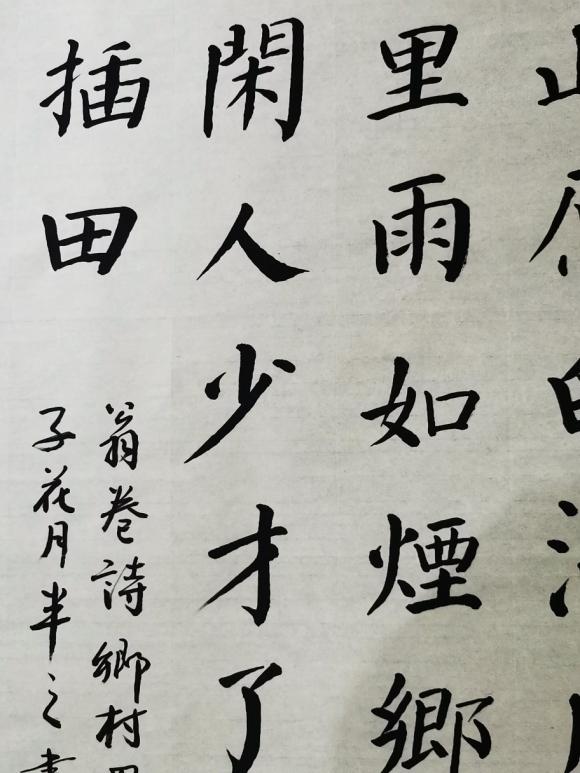 里雨如煙鄉
閑人少才了
插田
翁卷詩鄉村
子花月半之書